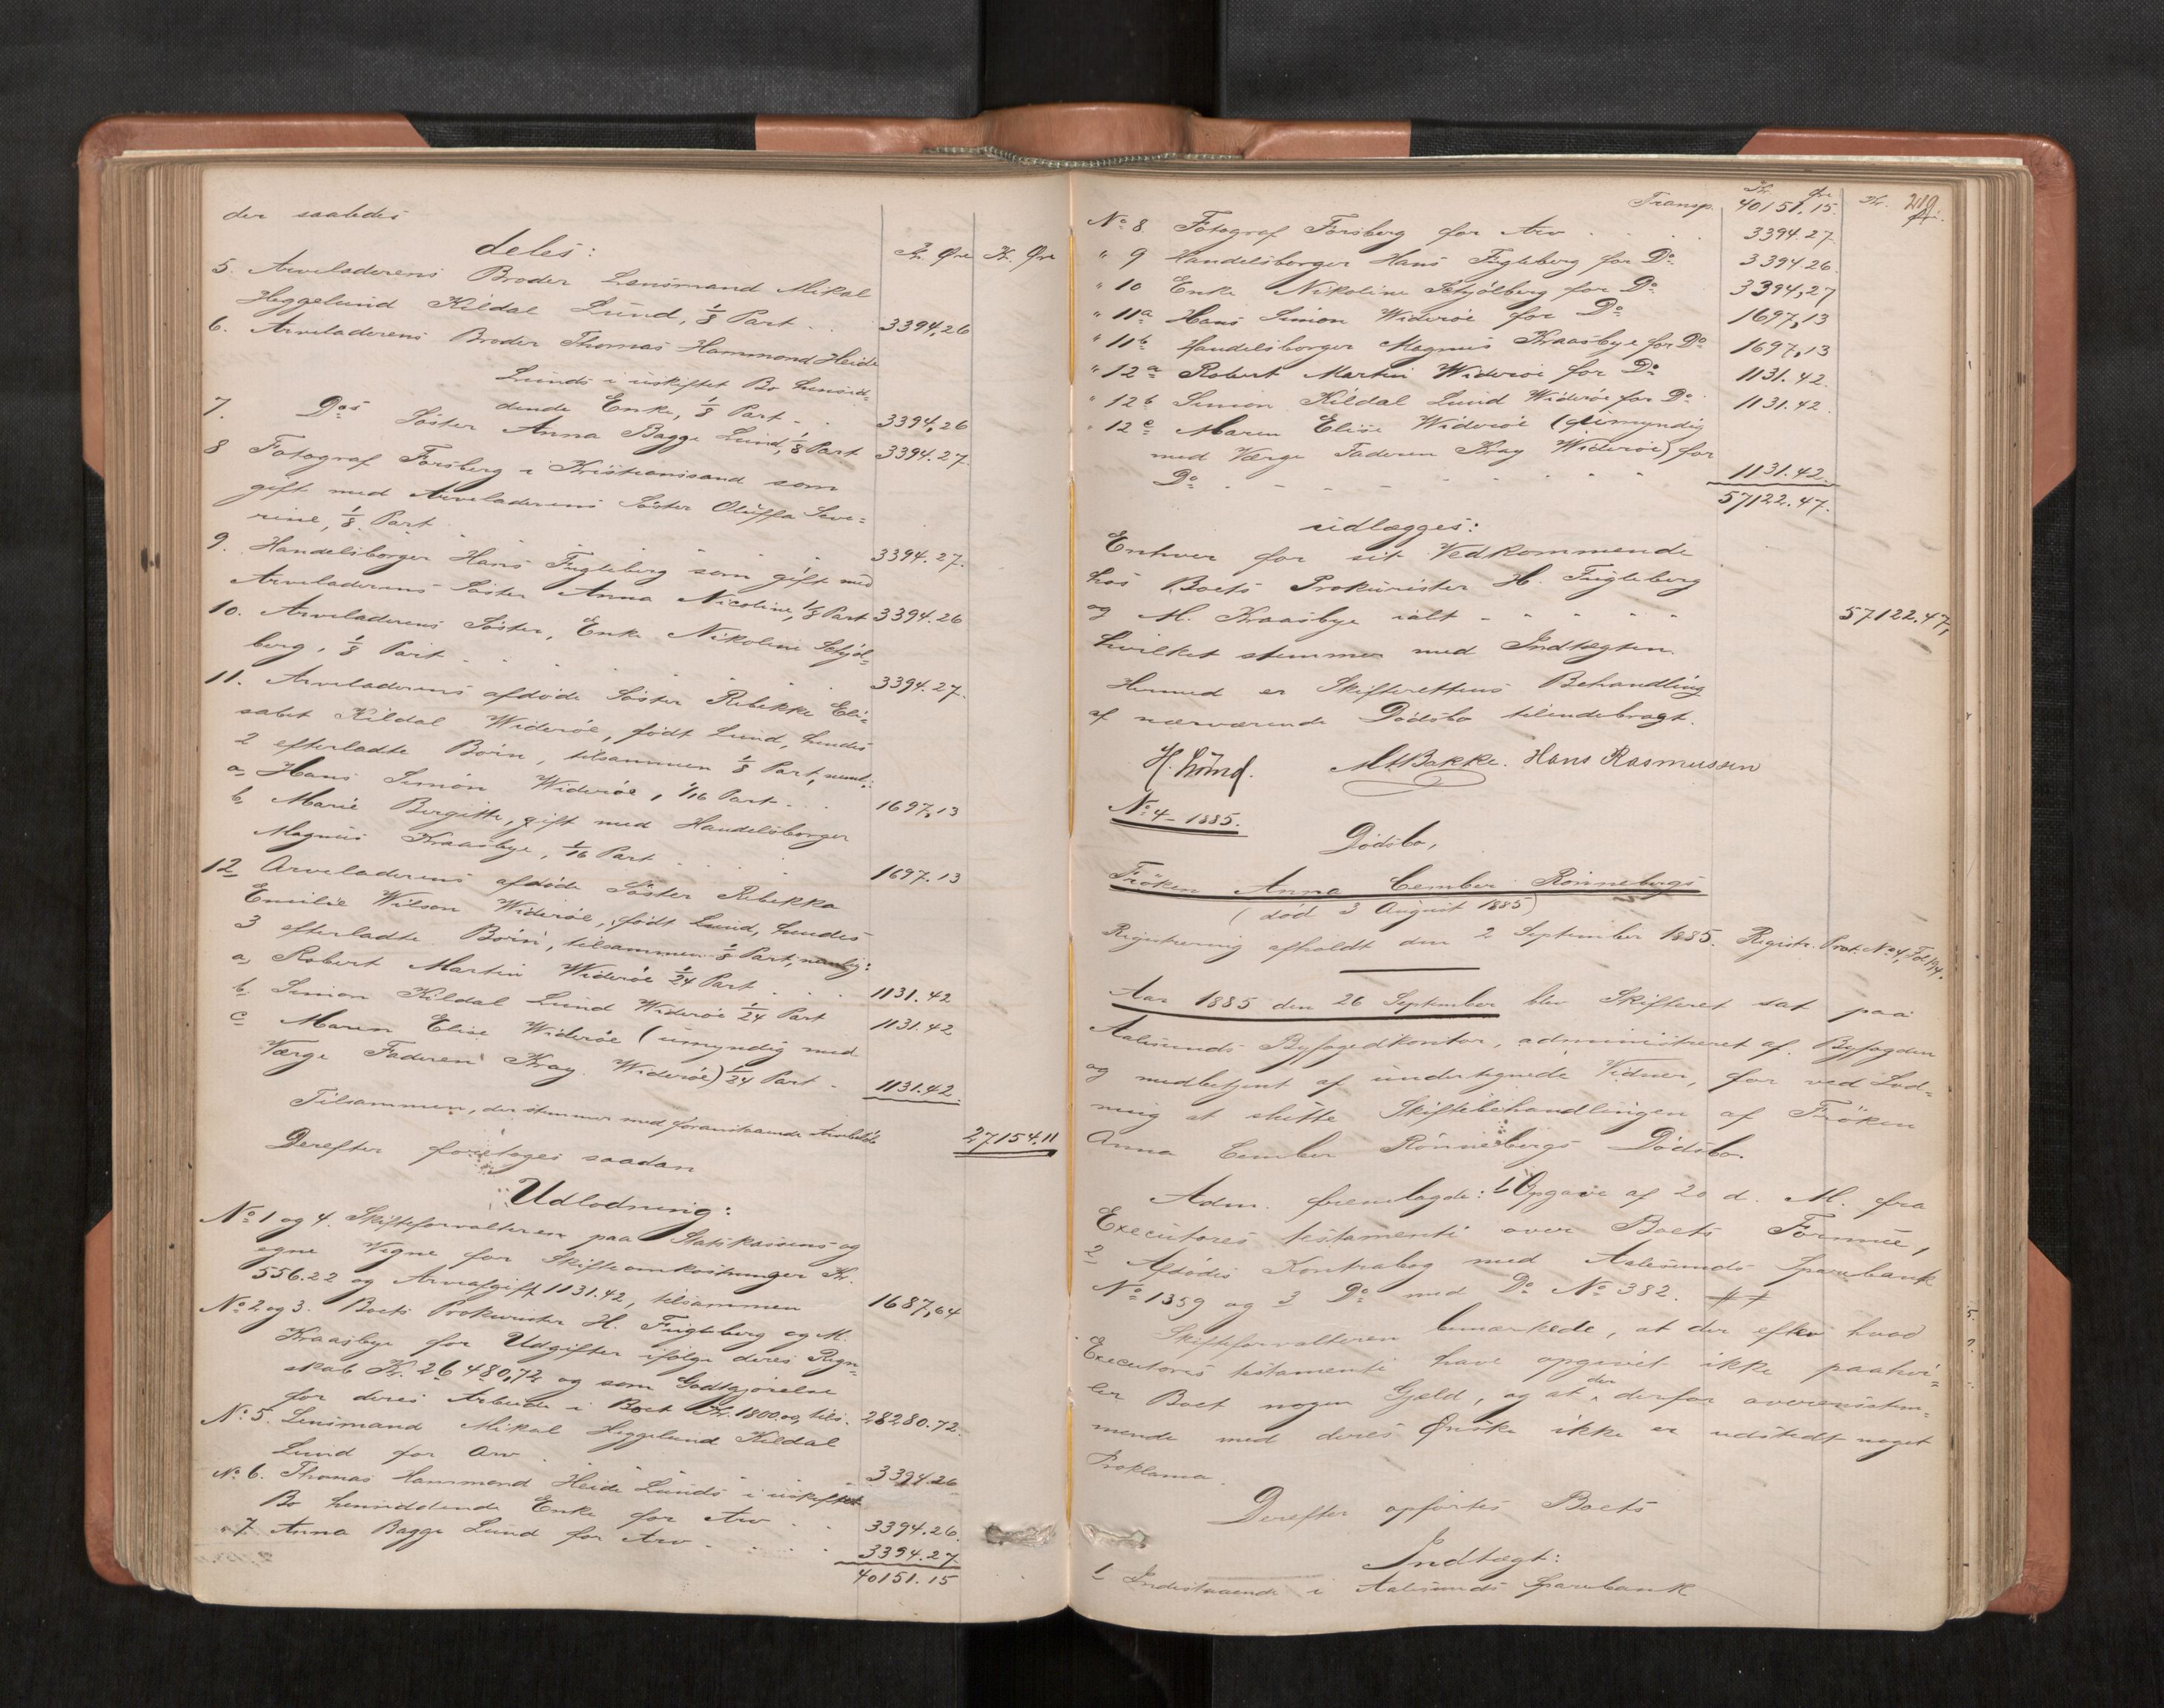 der saaledes
deles:
Kr. Øre Kr. Øre
5. Arveladerens Broder Lensmand Mikal
Heggelund Kildal Lund, 1/8 Part . . 3394,26
6. Arveladerens Broder Thomas Hammond Heide
Lunds i uskiftet Bo hensid=
dende Enke, 1/8 Part . . 3394,26
7. Dos Söster Anna Bagge Lund, 1/8 Part 3394.27
8 Fotograf Forsberg i Kristiansand som
gift med Arveladerens Söster Oluffa Seve=
rine, 1/8 Part . . . . . 3394.27.
9. Handelsborger Hans Fugleberg som gift med
Arveladerens Söster Anna Nicoline, 1/8 Part 3394.26
10. Arveladerens Söster, Enke Nikoline Schjöl=
berg, 1/8 Part . . . . . 3394.27.
11. Arveladerens afdöde Söster Rebekke Eli=
sabet Kildal Wideröe, födt Lund, hendes
2 efterladte Börn, tilsammen 1/8 Part, neml.:
a, Hans Simon Wideröe, 1/16 Part . . . 1697,13
b, Marie Bergitte, gift med Handelsborger
Magnus Kraasbye, 1/16 Part . . . 1697.13
12, Arveladerens afdöde Söster Rebekka
Emilie Wilson Wideröe, födt Lund, hendes
3 efterladte Börn, tilsammen 1/8 Part, nemlig:
a, Robert Martin Wideröe 1/24 Part . . . 1131.42
b. Simon Kildal Lund Wideröe 1/24 Part 1131.42
c Maren Elise Wideröe (umyndig med
Værge Faderen Kray Wideröe) 1/24 Part . 1131.42.
Tilsammen, der stemmer med foranstaaende Arvebelöb 27154.11
Derefter foretoges saadan
Udlodning:
No 1 og 4. Skifteforvalteren paa Statskassens og
egne Vegne for Skifteomkostninger Kr.
556.22 og Arveafgift 1131.42, tilsammen 1687,64
No 2 og 3. Boets Prokurister H. Fugleberg og M.
Kraasbye for Udgifter ifölge deres Regn=
skab Kr. 26480,72 og som Godtgjörelse
for deres Arbeide i Boet Kr. 1800.00, tils. 28280.72.
No 5. Lensmand Mikal Heggelund Kildal
Lund for Arv . . . . 3394.26
No 6. Thomas Hammond Heide Lunds i uskiftet
Bo hensiddende Enke for Arv . . 3394.26.
" 7. Anna Bagge Lund for Arv . . . . 3394.27
40151.15
219
Kr. Øre Kr. Øre
Transp. 40151.15.
No 8 Fotograf Forsberg for Arv . . . 3394.27
" 9 Handelsborger Hans Fugleberg for Do 3394.26.
" 10 Enke Nikoline Schjölberg for Do 3394,27
" 11a Hans Simon Wideröe for Do 1697,13
" 11b Handelsborger Magnus Kraasbye for Do 1697,13
" 12a Robert Martin Wideröe for Do 1131.42.
" 12b Simon Kildal Lund Wideröe for Do 1131.42.
" 12c Maren Elise Wideröe (umyndig
med Værge Faderen Kray Wideröe) for
Do . . . . . . . 1131.42.
57122.47.
udlægges:
Enhver for sit Vedkommende
hos Boets Prokurister H. Fugleberg
og M. Kraasbye ialt . . . . . 57122.47,
hvilket stemmer med Indtægten.
Hermed er Skifterettens Behandling
af nærværende Dödsbo tilendebragt.
Hans Rasmussen
No 4 - 1885.
Dödsbo,
Fröken Anna Cember Rönnebergs
(död 3 August 1885)
Registrering afholdt den 2 September 1885. Registr. Prot. No 4, Fol 194.
Aar 1885 den 26 September blev Skifteret sat paa
Aalesunds Byfogedkontor, administreret af Byfogden
og medbetjent af undertegnede Vidner, for ved Lod=
ning at slutte Skiftebehandlingen af Fröken
Anna Cember Rönnebergs Dödsbo.
Adm. fremlagde: 1 Opgave af 20 d. M. fra
Executores testamenti over Boets Formue,
2 Afdödes Kontrabog med Aalesunds Sparebank
No 1359 og 3 Do med Do No 382.
Skifteforvalteren bemærkede, at der efter hvad
Executores testamenti have opgivet ikke paahvi=
ler Boet nogen Gjæld, og at der derfor overensstem=
mende med deres Önske ikke er udstedt noget
Proklama.
Derefter opförtes Boets
Indtægt:
1 Indestaaende i Aalesunds Sparebank